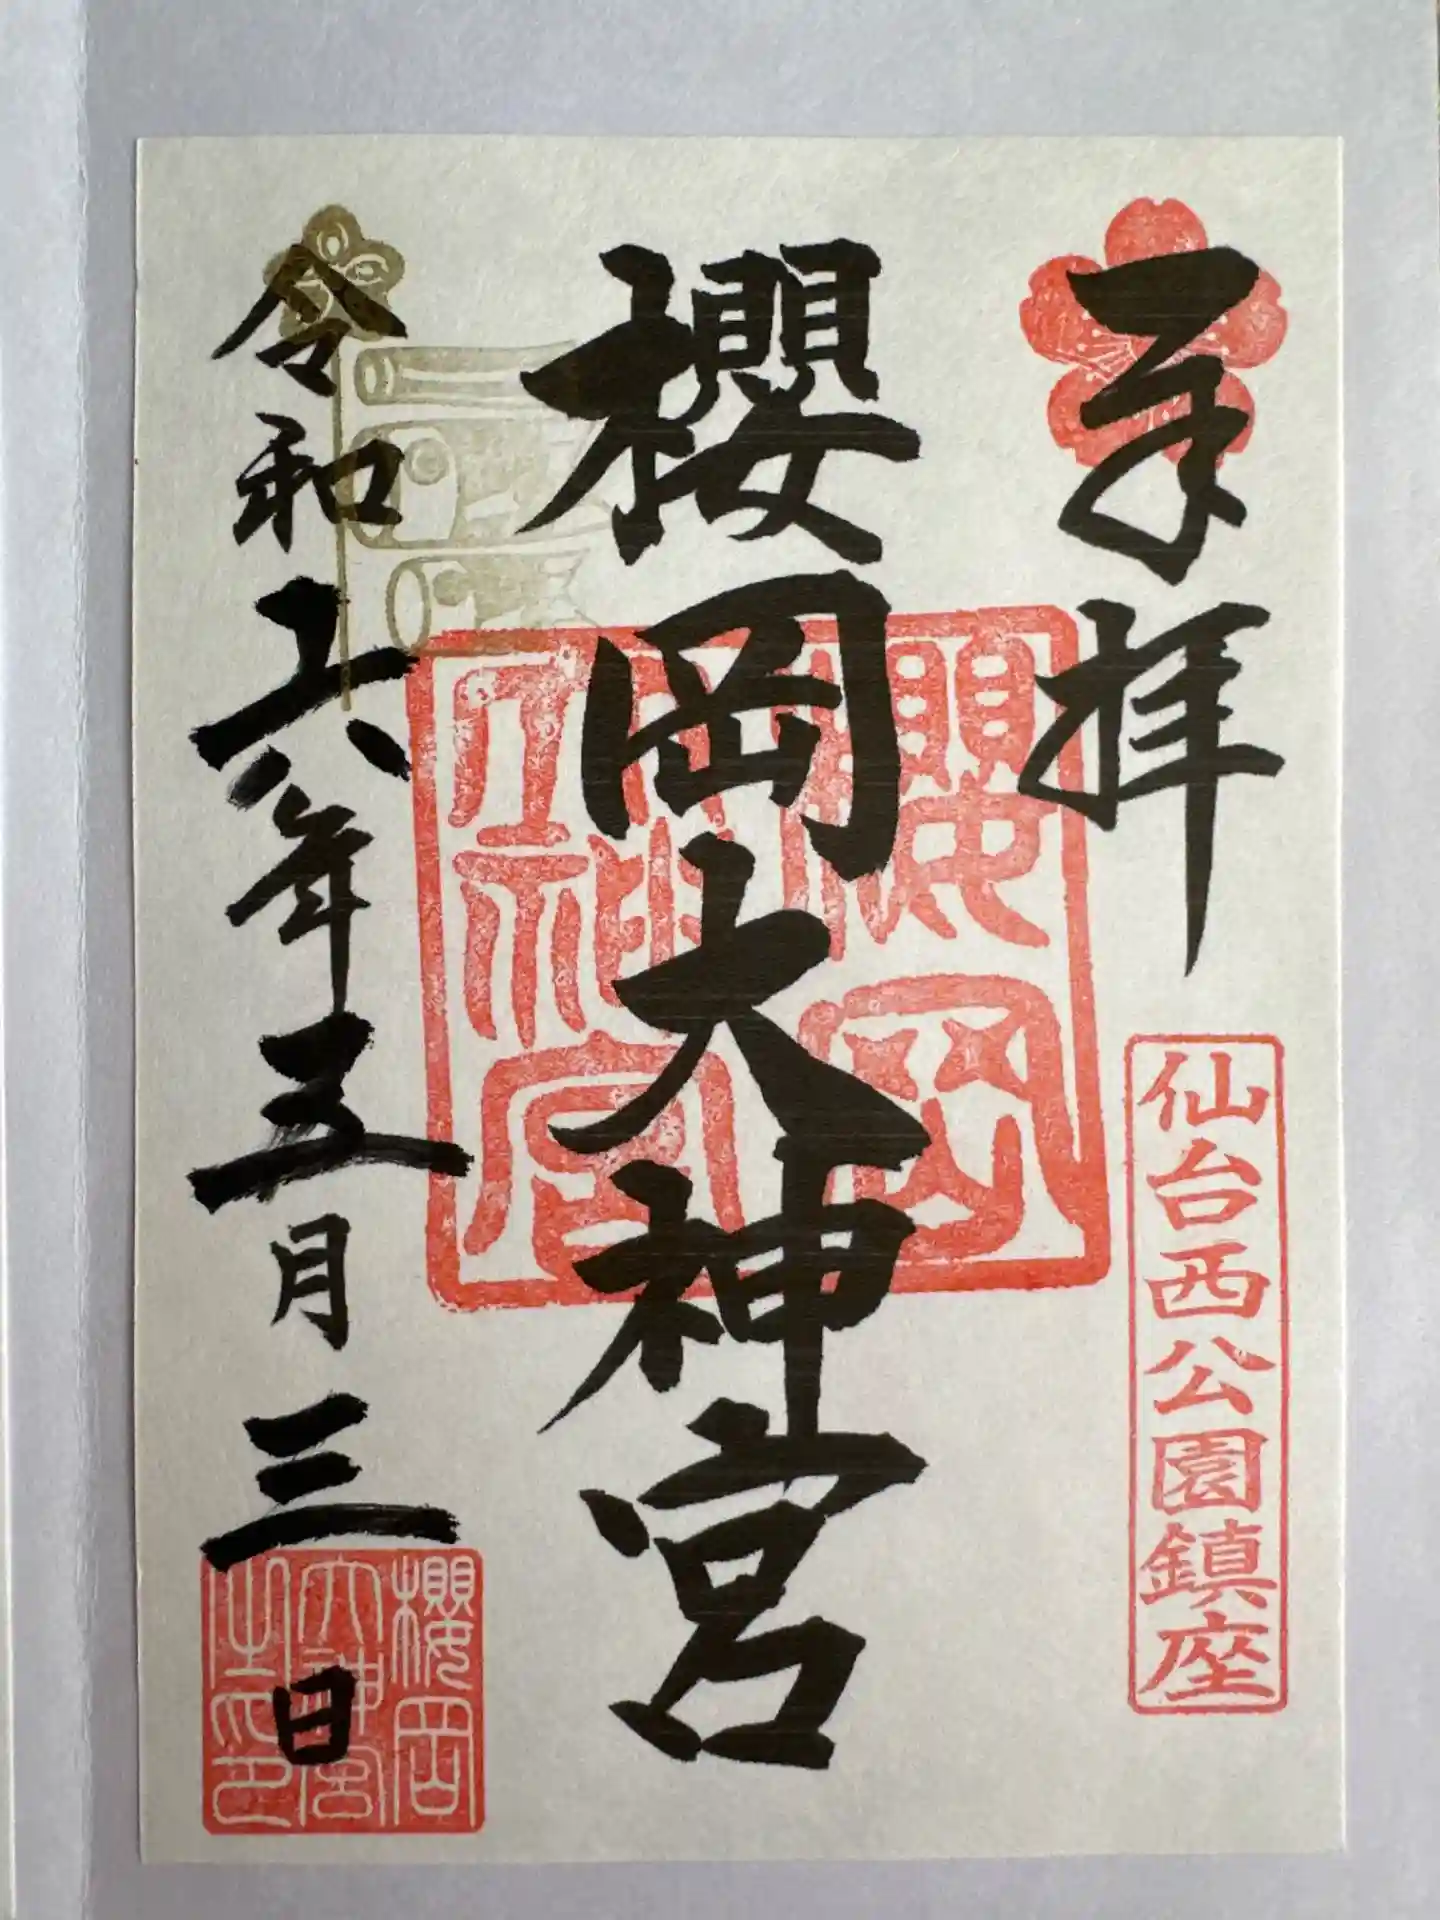 奉拝
仙台西公園鎮座
櫻岡大神宮
櫻岡
大神宮
令和六年五月三日
櫻岡
大神宮
之印